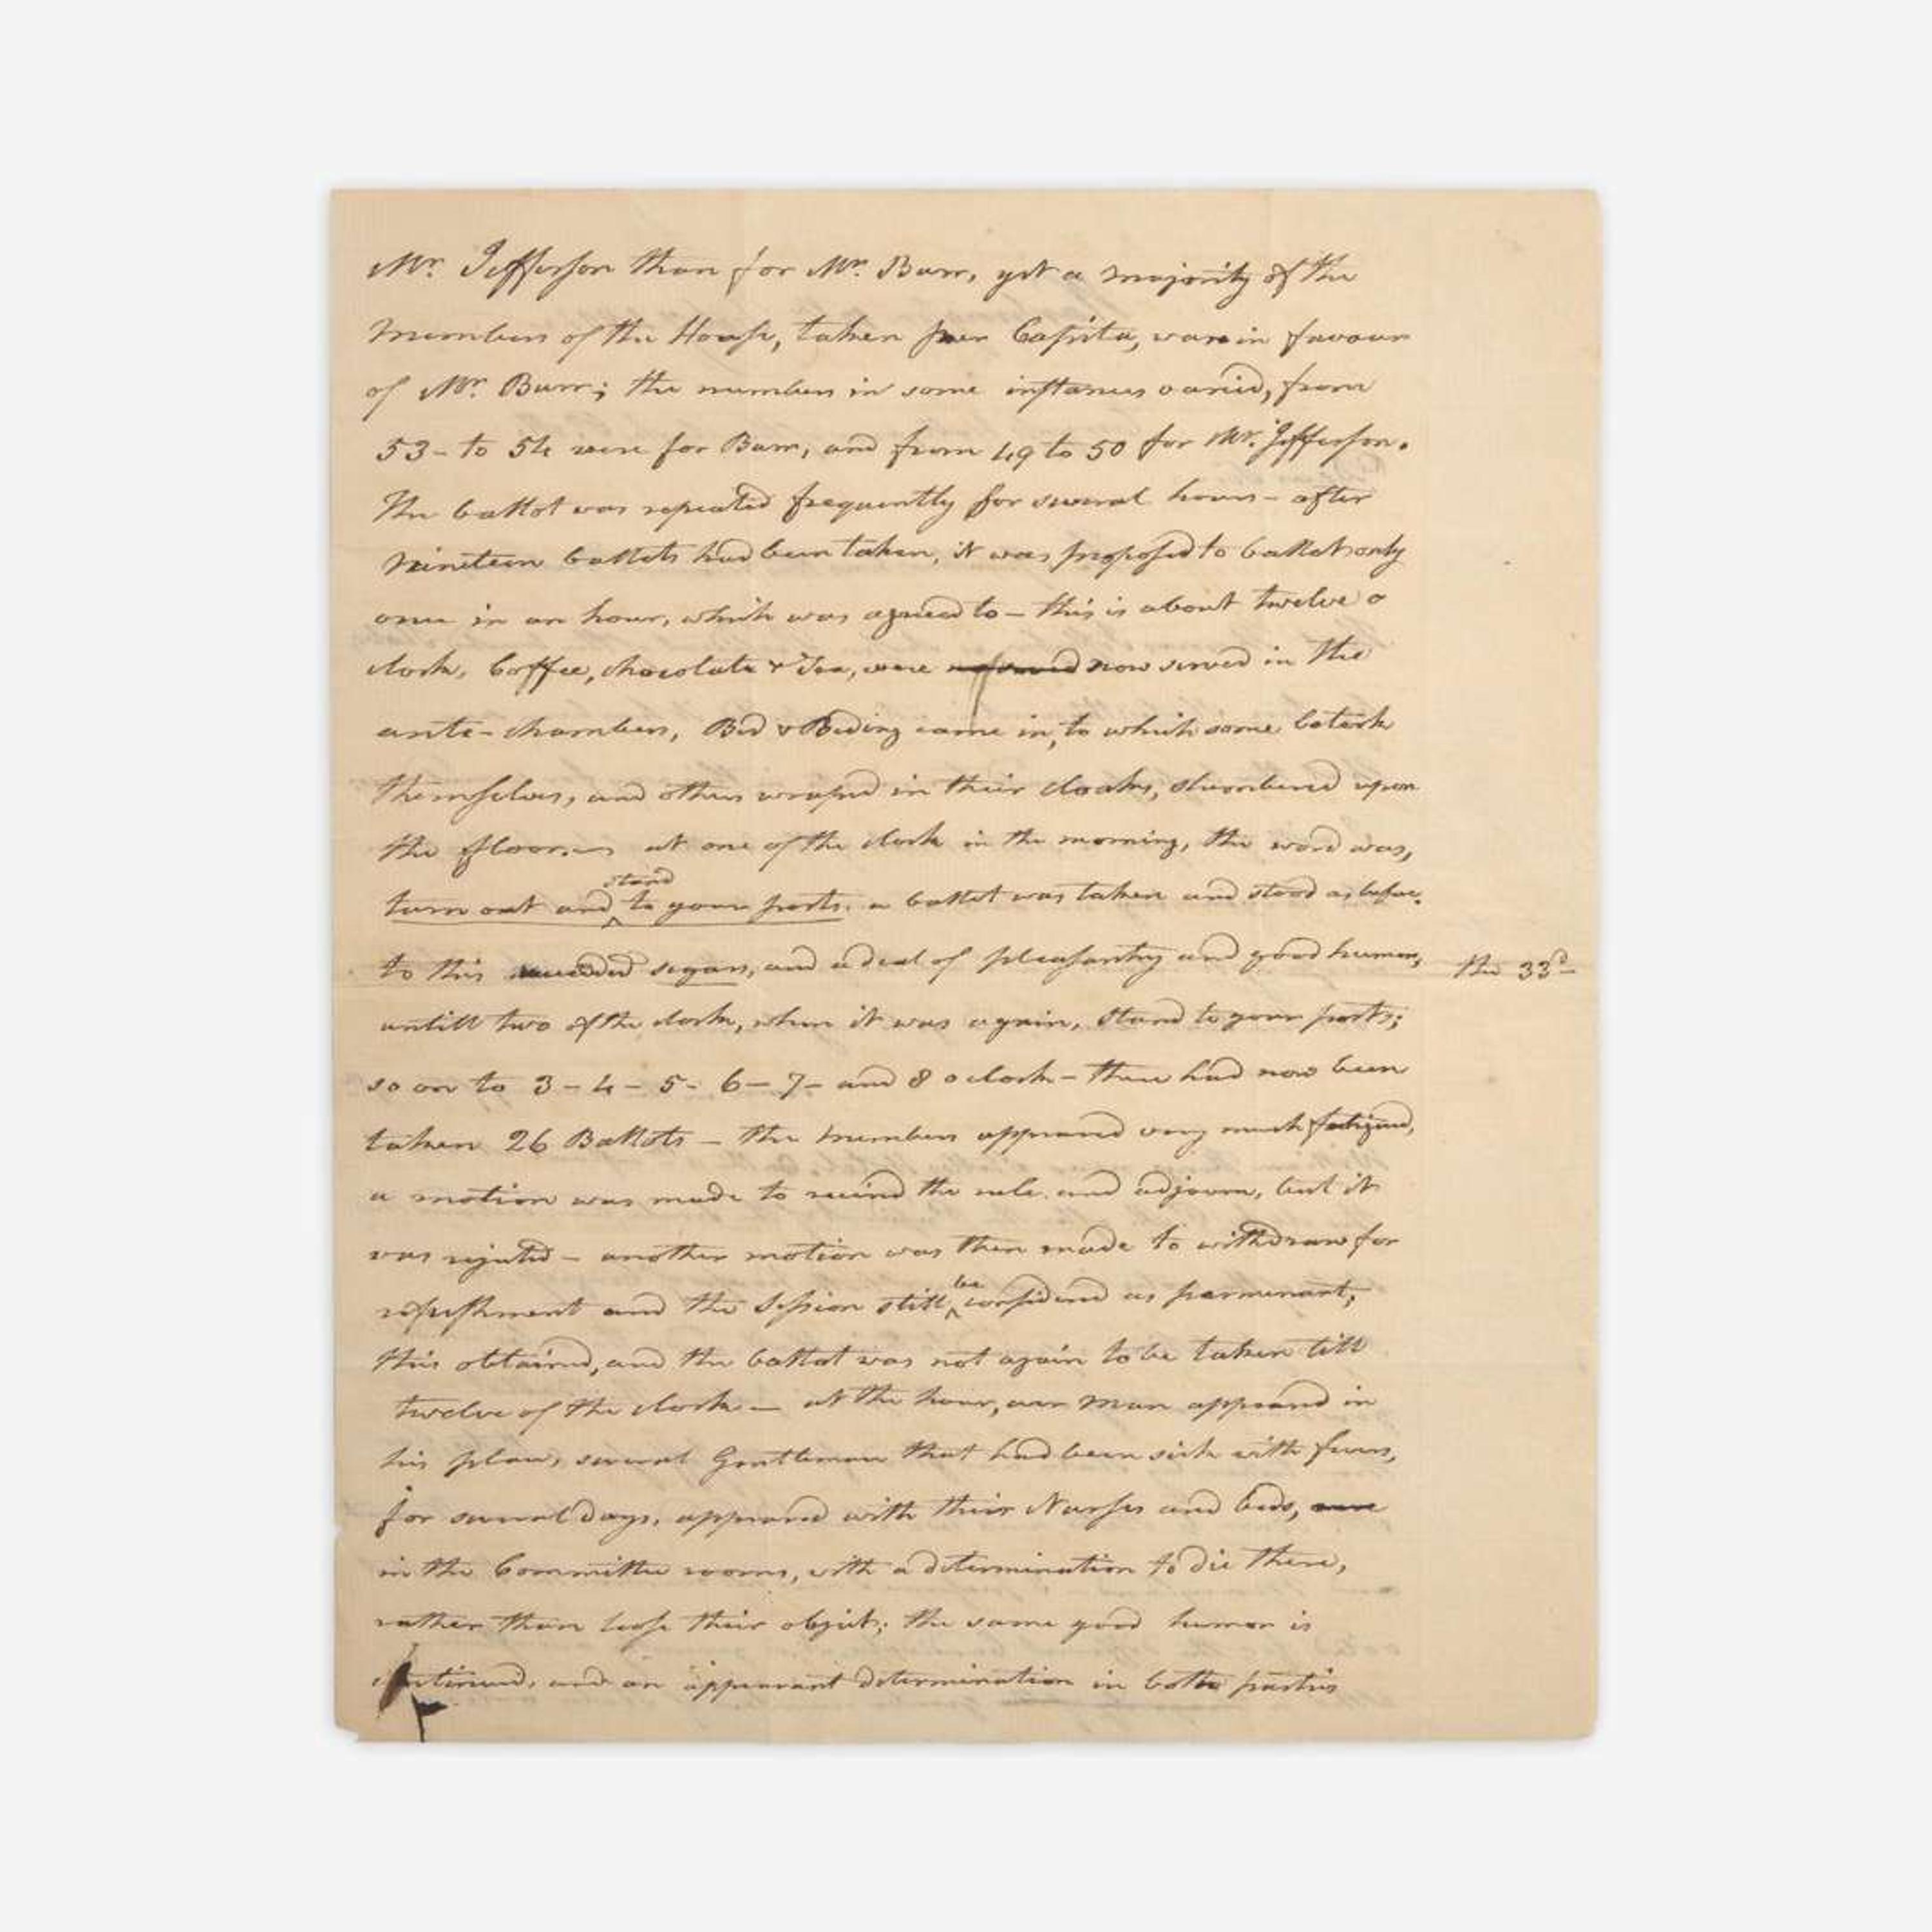 Mr. Jefferson than for Mr. Burr, yet a majority of the
members of the House, taken per Capita, was in favour
of Mr. Burr; the numbers in some instances varied, from
53 - to 54 were for Burr, and from 49 to 50 for Mr. Jefferson.
The ballot was repeated frequently for several hours - after
nineteen ballots had been taken, it was proposed to ballot only
once in an hour, which was agreed to - this is about twelve o
clock, Coffee, chocolate & Tea, were now served in the
ante-chambers, Bed & Beding came in, to which some betook
themselves, and others wraped in their cloaks, slumbered upon
the floor. - at one of the clock in the morning, the word was,
turn out and stand to your posts. a ballot was taken and stood as before.
to this succeeded segars, and a deal of pleasantry and good humor, the 33d -
untill two of the clock, when it was again, stand to your posts;
so on to 3 - 4 - 5 - 6 - 7 - and 8 o clock - there had now been
taken 26 Ballots - the members appeared very much fatigued,
a motion was made to recind the rule and adjourn, but it
was rejected - another motion was then made to withdraw for
refreshment and the Session still be considered as permenant,
this obtained, and the ballot was not again to be taken till
twelve of the clock - at the hour, every man appeared in
his place, several Gentlemen that had been sick with fevers,
for several days, appeared with their Nurses and beds,
in the Committee rooms, with a determination to die there,
rather than loose their object; the same good humor is
continued, and an appearant determination in both parties